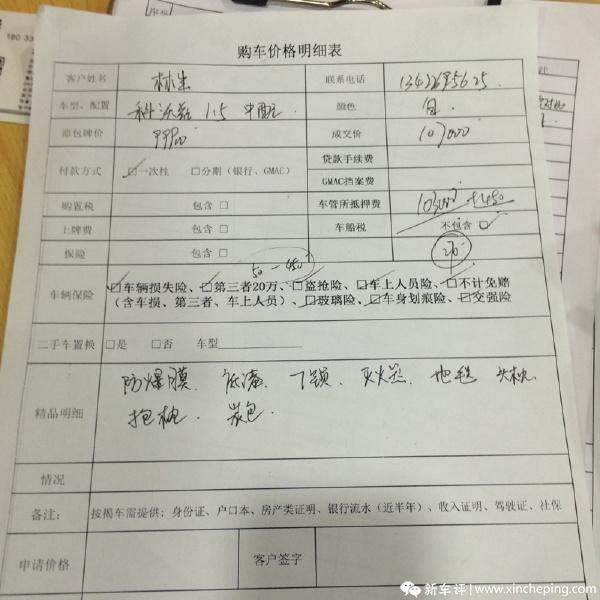 180 33
购车价格明细表
客户姓名 林生 联系电话
车型、配置 科沃兹 1.5 中配 颜色 白.
裸包牌价 99900 成交价 107000
付款方式 ☑一次性 □分期（银行、GMAC） 贷款手续费
GMAC挡案费
购置税 包含 □ 车管所抵押费
上牌费 包含 □ 车船税 不包含 ☑
保险 包含 □
车辆保险 ☑车辆损失险、☑第三者20万、☑盗抢险、☑车上人员险、☑不计免赔
（含车损、第三者、车上人员）、☑玻璃险、☑车身划痕险、☑交强险
二手车置换 □是 □否 车型
精品明细 防爆膜. 底漆. 丁锁. 灭火器. 地毯 头枕.
抱枕. 炭包.
情况
备注： 按揭车需提供：身份证、户口本、房产类证明、银行流水（近半年）、收入证明、驾驶证、社保
申请价格 客户签字
新车评 | www.xincheping.com